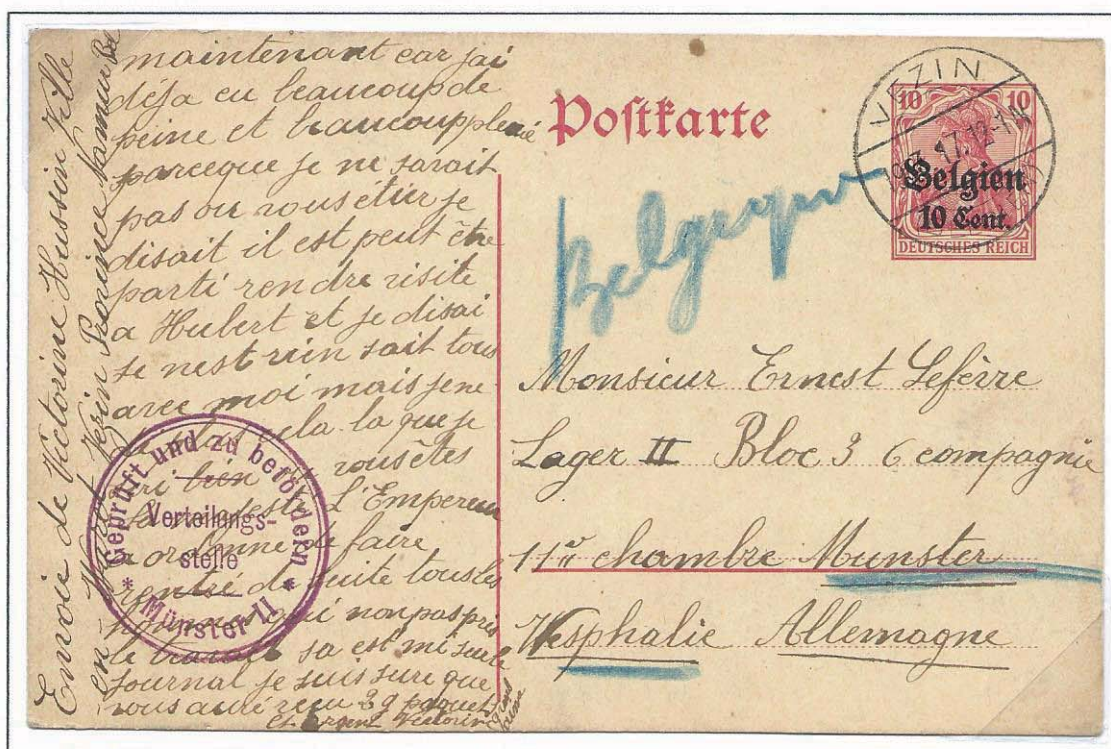 Envoie de Victorine Hussin Ville
en Wart Vezin Province Namur
maintenant car jai
déja eu beaucoup de
peine et beaucoup pleuré
parceque je ne savait
pas ou vous étier je
disait il est peut être
parti rendre visite
a Hubert et je disai
se nest rien sait tous
avec moi mais je ne
cela la que je
bien vous êtes
L'Empereur
a ordonne de faire
rentré de suite tous les
qui non pas pris
le travail sa est mi sur le
Journal je suis sure que
vous auré recu 39 paquet
et argent Victorine
Geprüft und zu befördern
Verteilungs-
stelle
* Münster II *
Postkarte
VEZIN
10 10
Belgien
10 Cent.
DEUTSCHES REICH
Belgique
Monsieur Ernest Lefèvre
Lager II Bloc 3 6 compagnie
11e chambre Munster
Wesphalie Allemagne